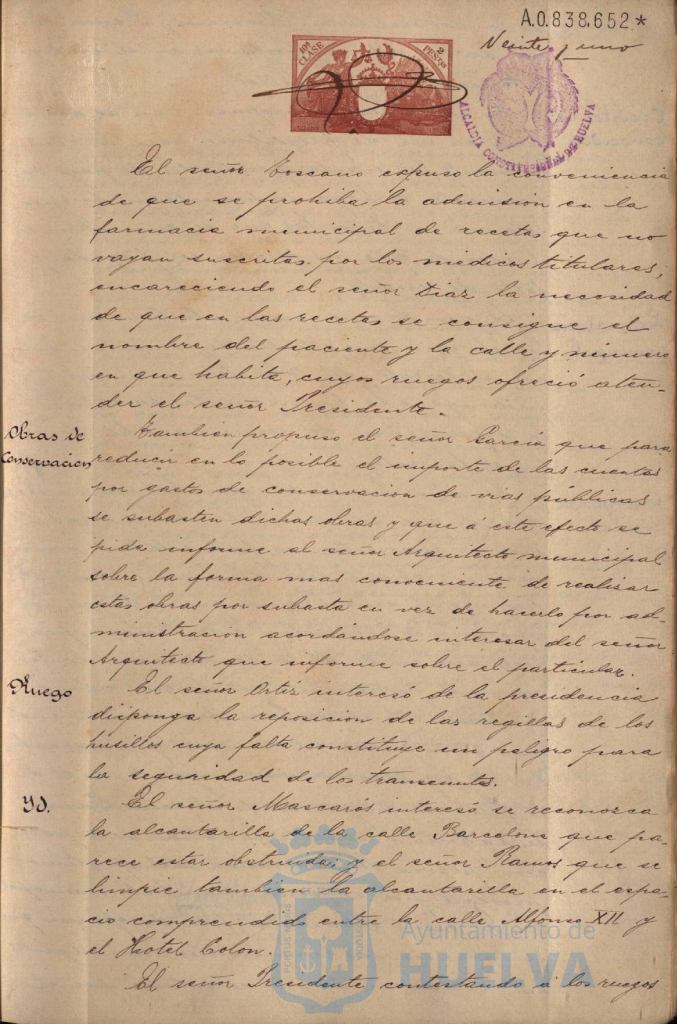 A.0.838,652*
Veinte y uno
10ª CLASE
2 PESETAS
ALCALDIA CONSTITUCIONAL DE HUELVA
El señor Toscano expuso la conveniencia
de que se prohiba la admisión en la
farmacia municipal de recetas que no
vayan suscritas por los médicos titulares,
encareciendo el señor Diaz la necesidad
de que en las recetas se consigne el
nombre del paciente y la calle y número
en que habita, cuyos ruegos ofreció aten-
der el señor Presidente.
Obras de
Conservacion
Tambien propuso el señor García que para
reducir en lo posible el importe de las cuentas
por gastos de conservacion de vias públicas
se subasten dichas obras y que á este efecto se
pida informe al señor Arquitecto municipal
sobre la forma mas conveniente de realisar
estas obras por subasta en vez de hacerlo por ad-
ministración acordándose interesar del señor
Arquitecto que informe sobre el particular.
Ruego
El señor Ortiz interesó de la presidencia
disponga la reposicion de las regillas de los
husillos cuya falta constituye un peligro para
la seguridad de los transeuntes.
YD.
El señor Mascarós interesó se reconozca
la alcantarilla de la calle Barcelona que pa-
rece estar obstruida; y el señor Ramos que se
limpie tambien la alcantarilla en el espa-
cio comprendido entre la calle Alfonso XII y
el Hotel Colon.
El señor Presidente contestando á los ruegos
Ayuntamiento de
HUELVA